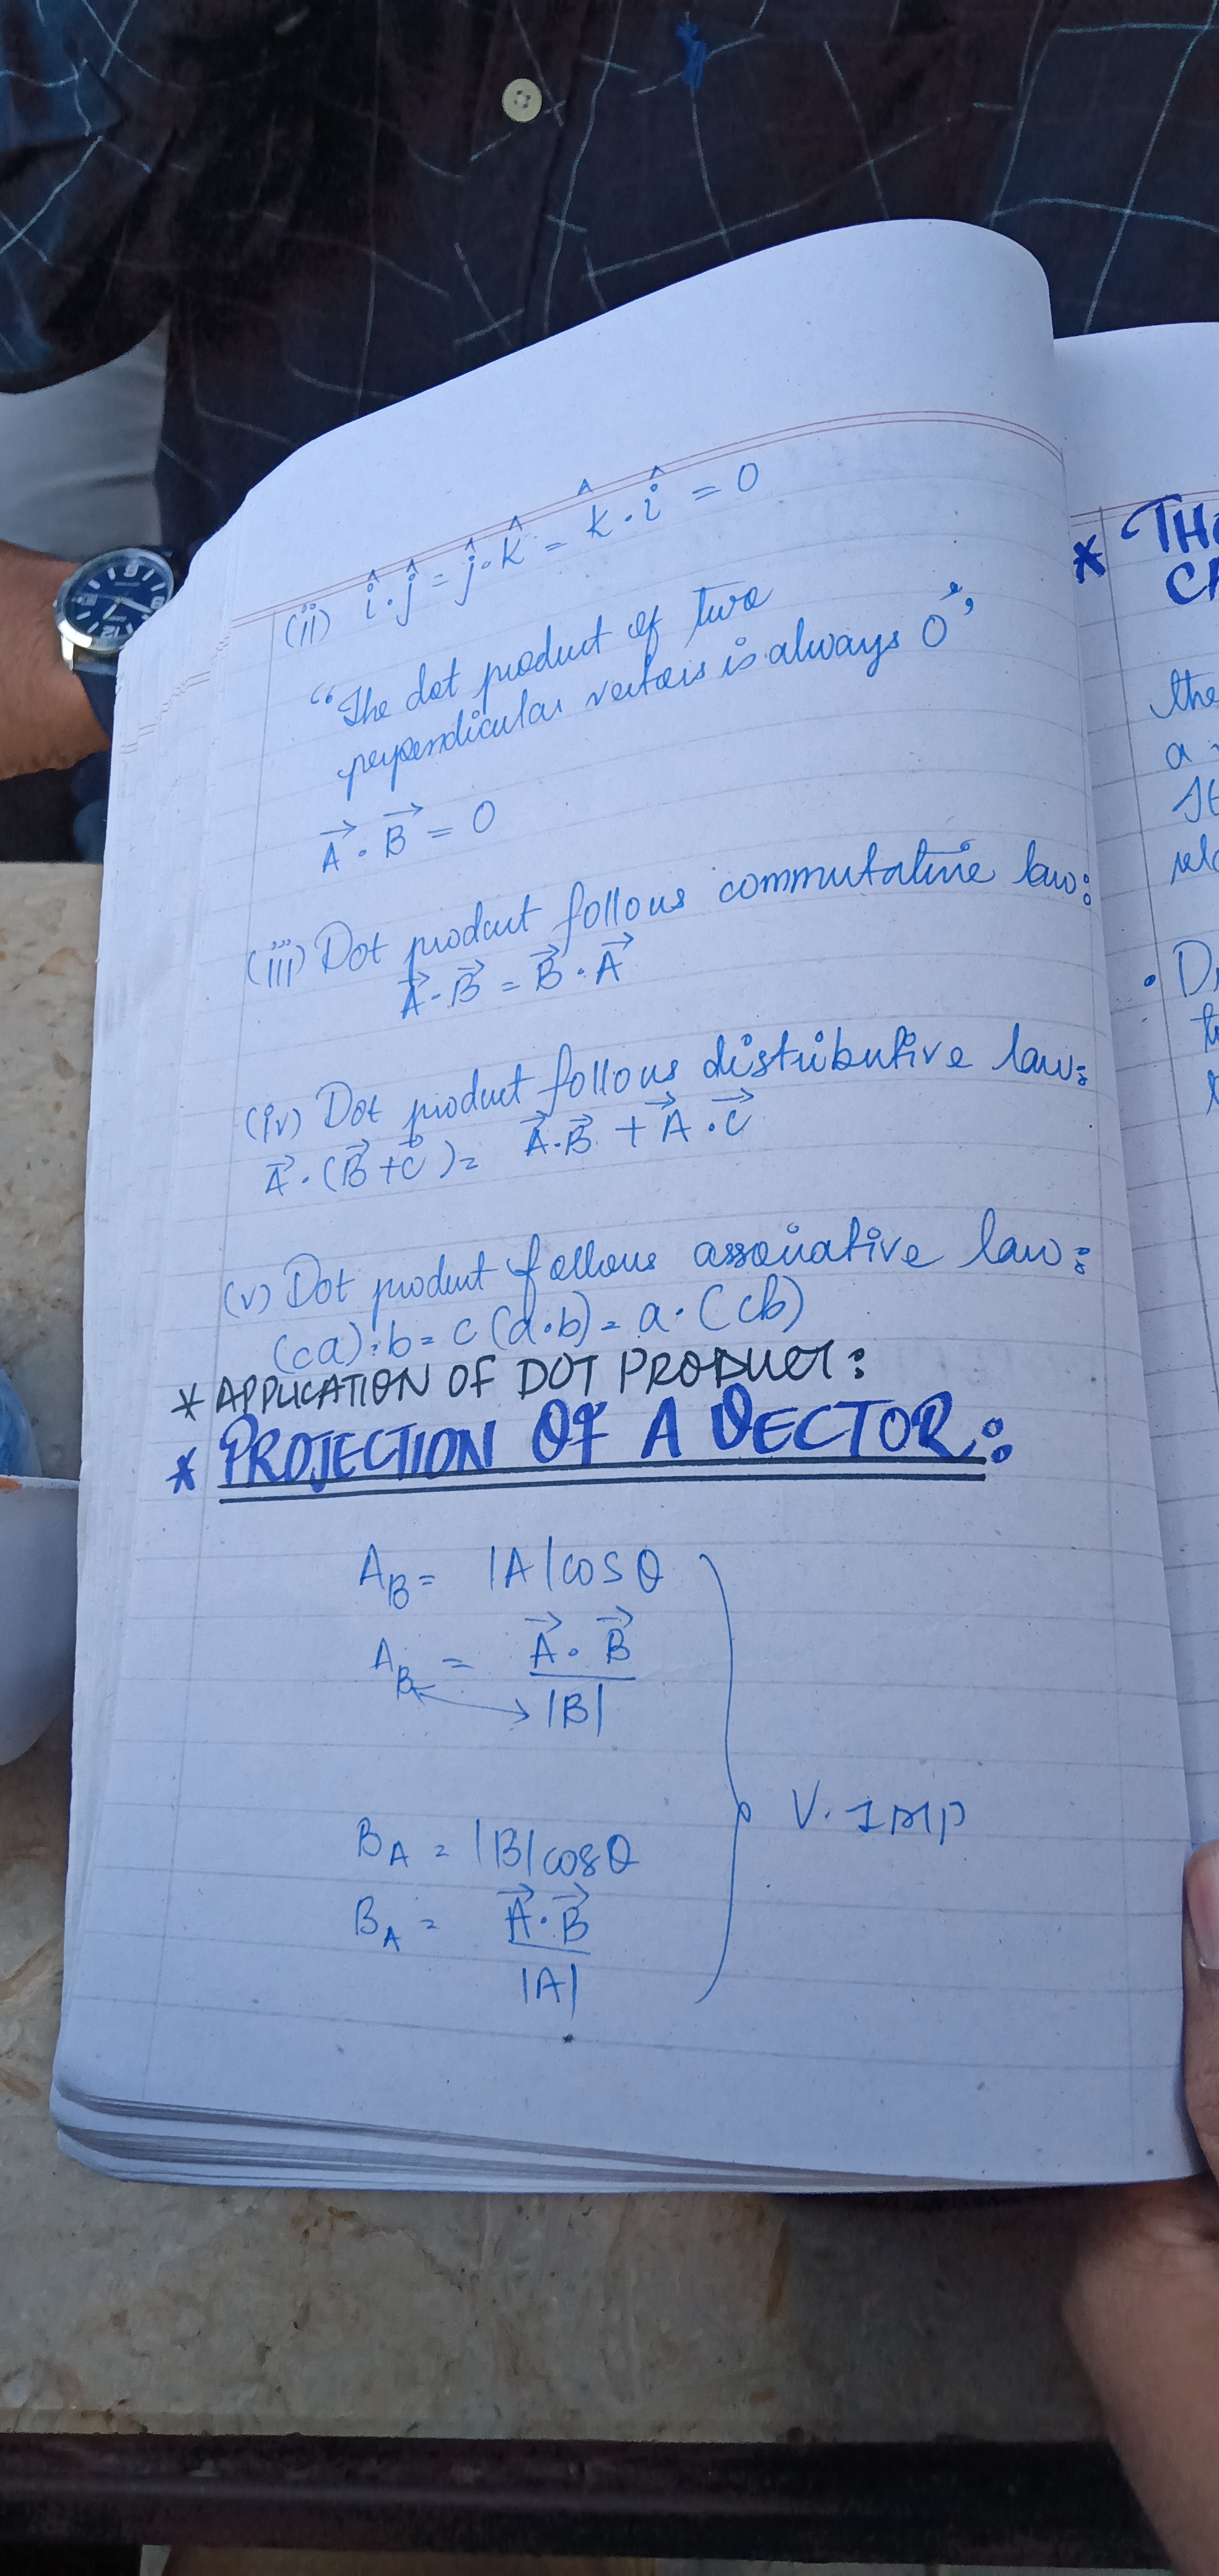 (ii) î·ĵ = ĵ·k̂ = k̂·î = 0
“The dot product of two
perpendicular vectors is always 0”
A⃗ · B⃗ = 0
(iii) Dot product follows commutative law:
A⃗ · B⃗ = B⃗ · A⃗
(iv) Dot product follows distributive law:
A⃗ · (B⃗ + C⃗) = A⃗·B⃗ + A⃗·C⃗
(v) Dot product follows associative law:
(ca)·b = c(a·b) = a·(cb)
* APPLICATION OF DOT PRODUCT:
* PROJECTION OF A VECTOR:
A_B = |A| cos θ
A_B = A⃗ · B⃗
|B|
V. IMP
B_A = |B| cos θ
B_A = A⃗ · B⃗
|A|
* TH
the
a